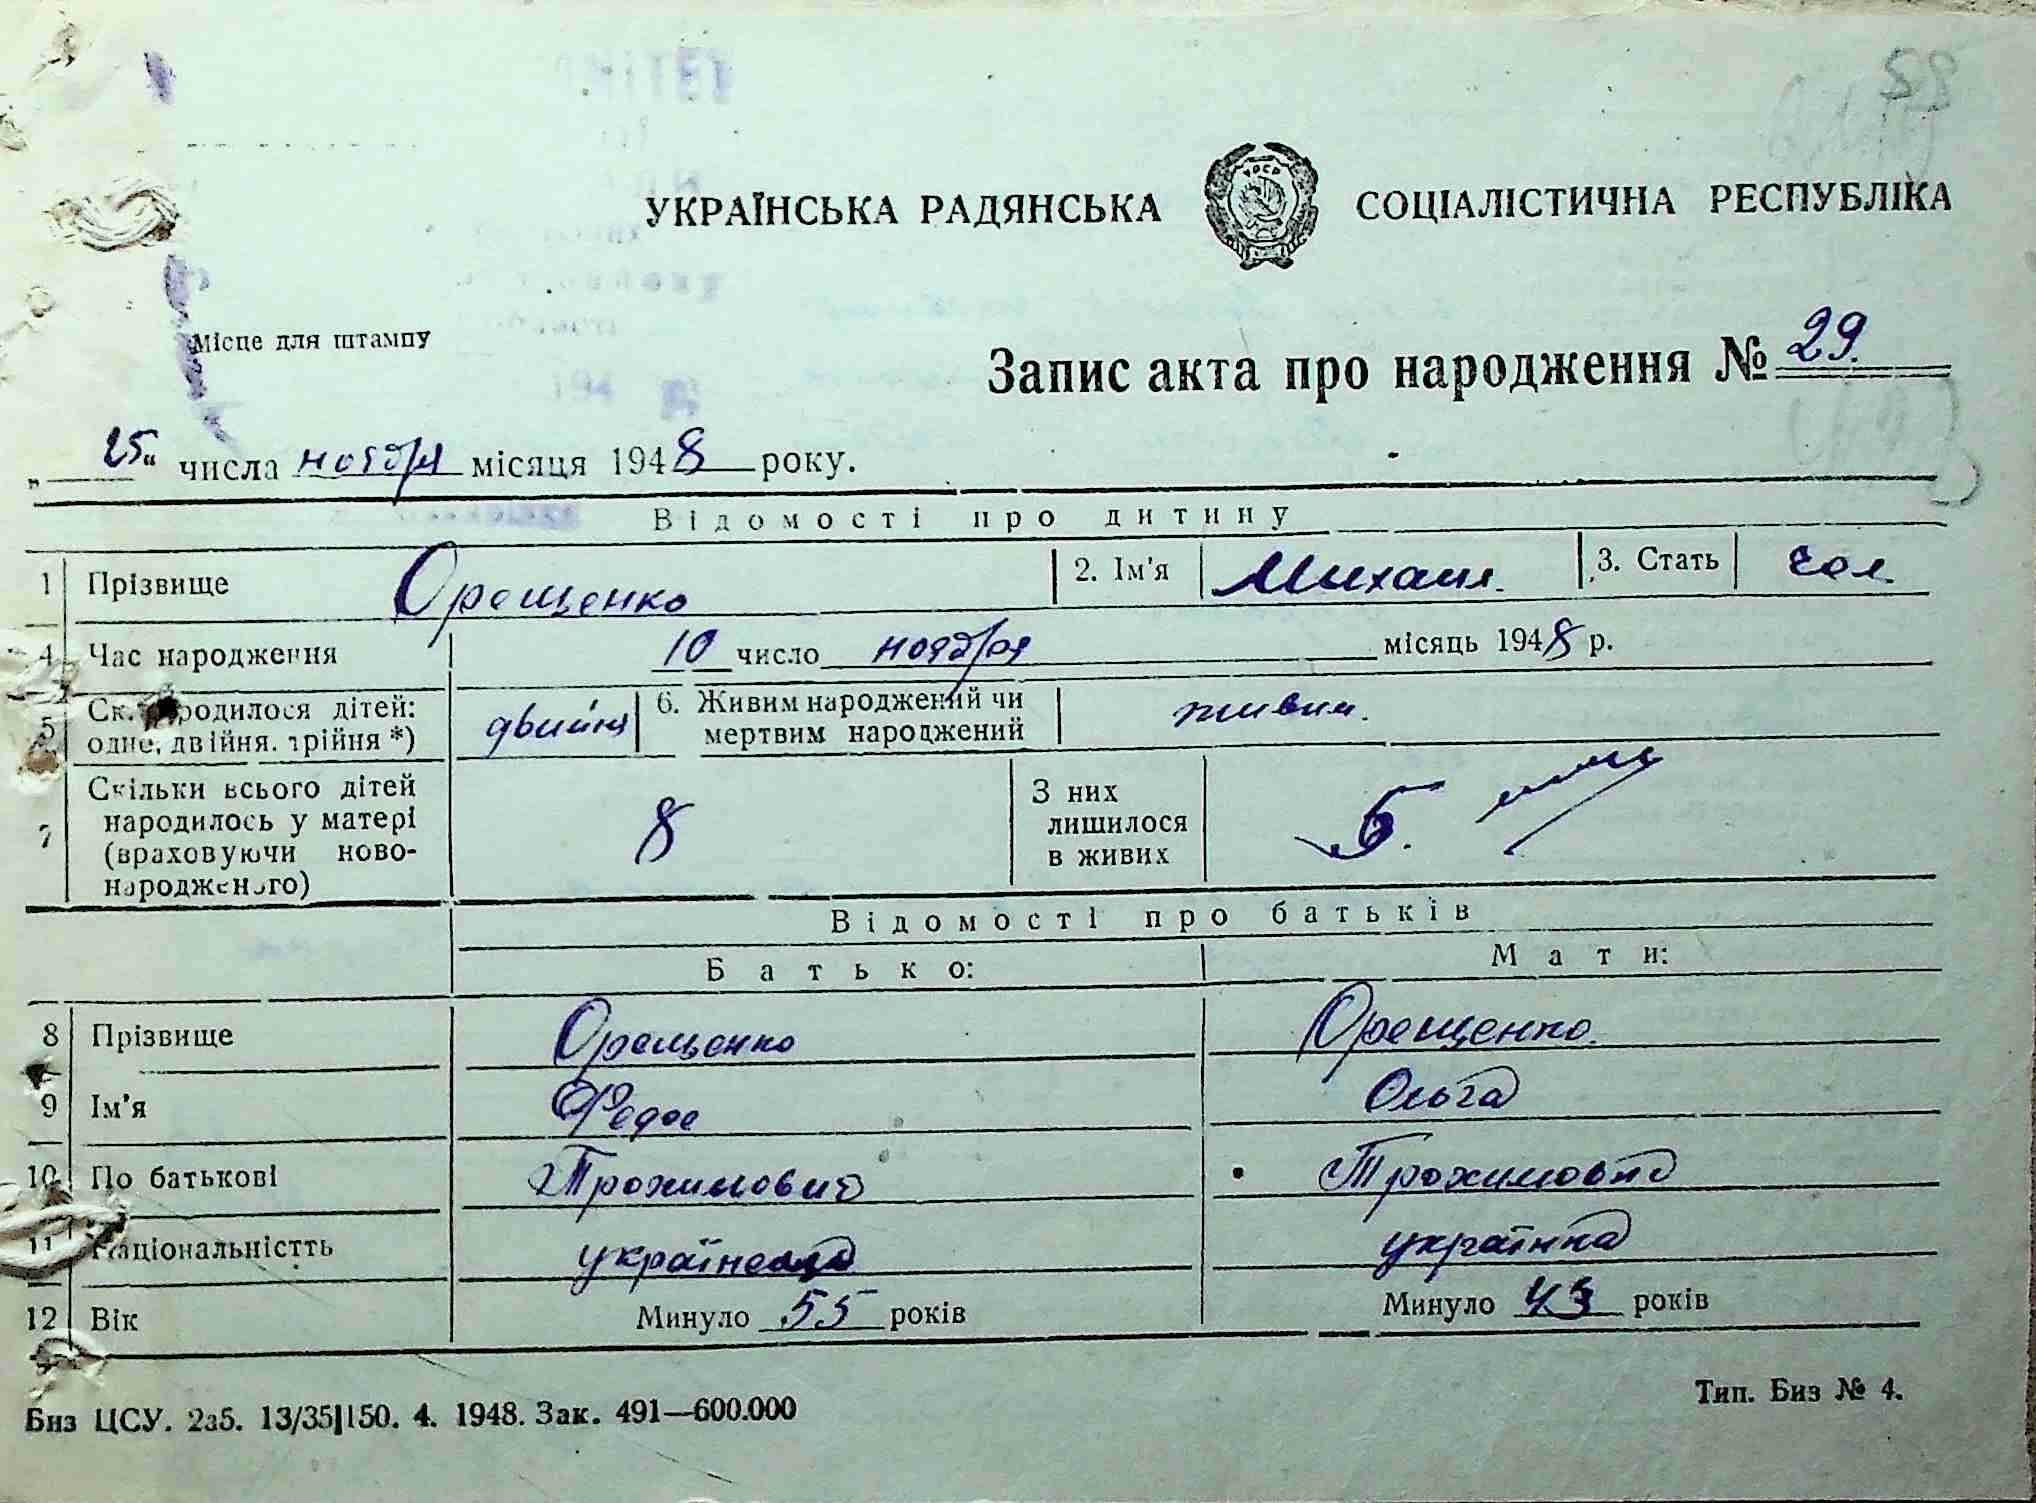 59
УКРАЇНСЬКА РАДЯНСЬКА СОЦІАЛІСТИЧНА РЕСПУБЛІКА
УРСР
Місце для штампу
Запис акта про народження № 29.
„25“ числа ноября місяця 1948 року.
Відомості про дитину
1 Прізвище Орещенко 2. Ім'я Михаил. 3. Стать чол.
4 Час народження 10 число ноября місяць 1948 р.
5 Ск. родилося дітей: двийня 6. Живим народжений чи живим.
одне, двійня, трійня *) мертвим народжений
7 Скільки всього дітей 8 З них 5.
народилось у матері лишилося
(враховуючи ново- в живих
народженого)
Відомості про батьків
Батько: Мати:
8 Прізвище Орещенко Орещенко.
9 Ім'я Федос Ольга
10 По батькові Трохимович Трохимовна
11 Національністть українець українка
12 Вік Минуло 55 років Минуло 43 років
Биз ЦСУ. 2а5. 13/35|150. 4. 1948. Зак. 491—600.000 Тип. Биз № 4.